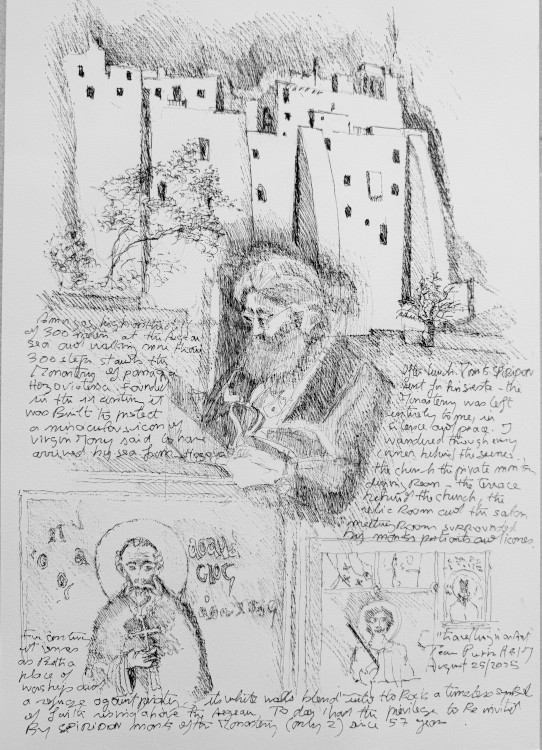 of 300 at the Aegean
Sea and walking more than
300 steps stands the
Monastery of panagia
Hozoviotissa. Founded
in the 11 century it
was Built to protect
a miraculous icon of
Virgin Mary said to have
arrived by sea from
After lunch. Monk SPIRIDON
went for his siesta - the
Monastery was left
entirely to me, in
silence and peace. I
wandered through every
corner behind the scenes
the church the private monks
dining room - the terrace
behind the church, the
relic Room and the salon
meeting Room surrounded
by monks portraits and icones
it serves
as Both a
place of
worship and
a refuge against pirates its white walls blend into the Rock a timeless symbol
of faith rising above the Aegean To day I had the privilege to Be invited
By SPIRIDON monk of the Monastery (only 2) since 57 year
August 25/2025